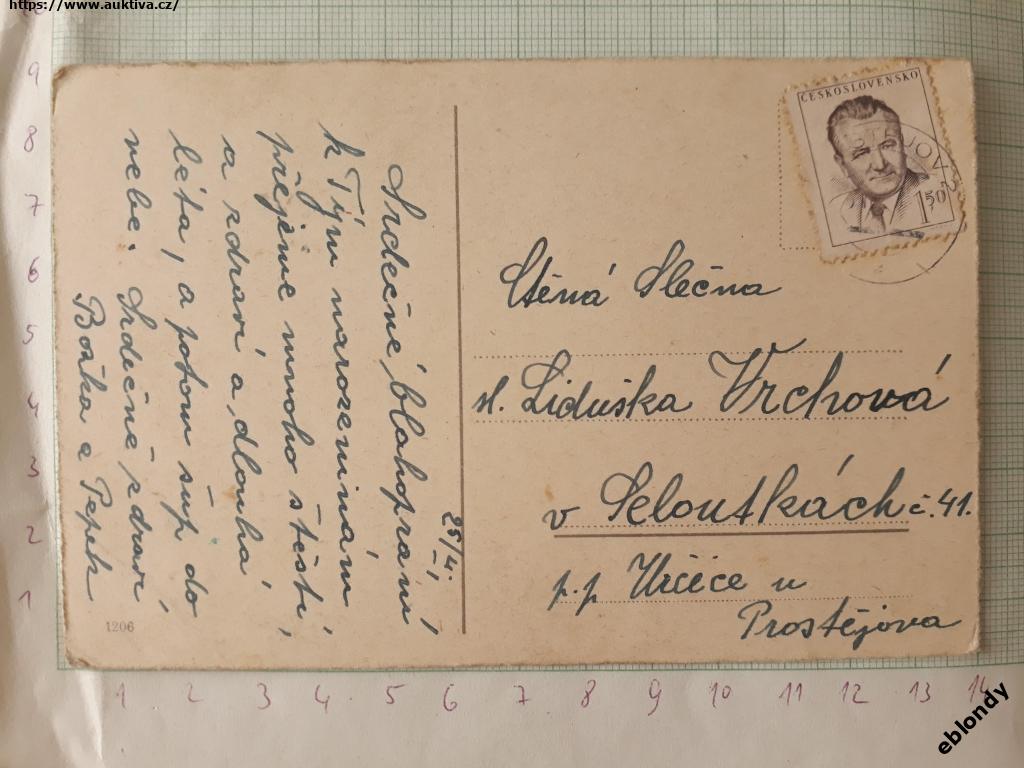 https://www.auktiva.cz/
9
8
7
6
5
4
3
2
1
25/4.
Srdečné blahopraní
k Tým narozeninám
přejeme mnoho štěstí,
a zdraví a dlouhá
léta, a potom šup do
nebe. Srdečně zdraví
Božka a Pepek
1206
ČESKOSLOVENSKO
1.50
Ctěná Slečna
sl. Liduška Vrchová
v Seloutkách č. 41.
p.p Určice u
Prostějova
1 2 3 4 5 6 7 8 9 10 11 12 13 14
eblondy